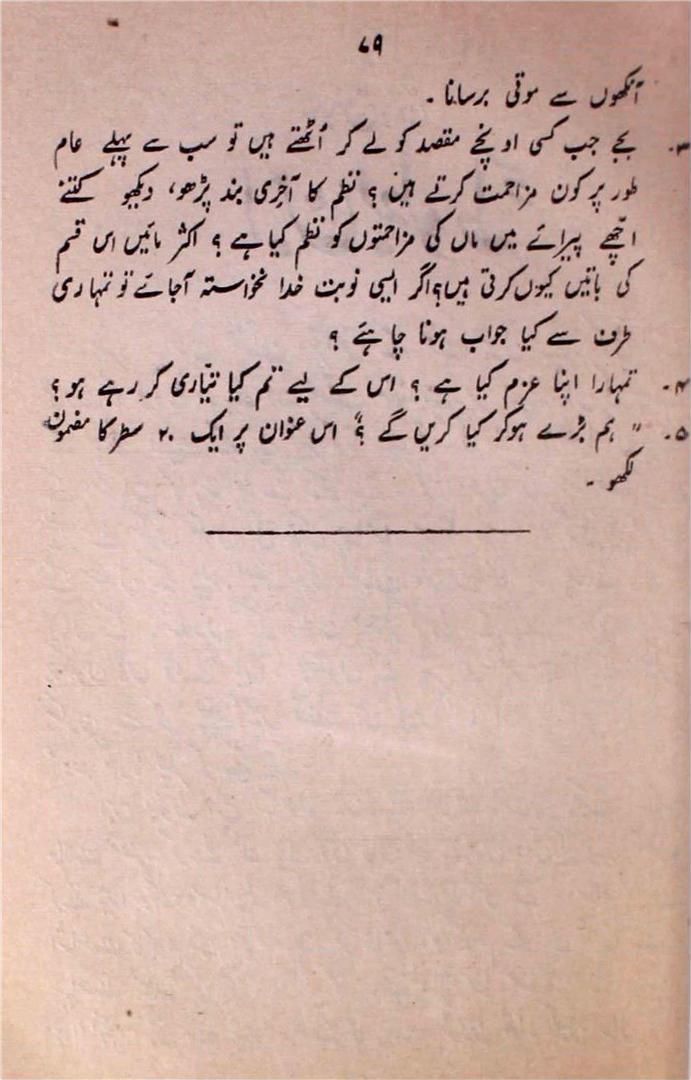 ۷۹
آنکھوں سے موتی برسانا ۔
۳۔ بچے جب کسی اونچے مقصد کو لے کر اُٹھتے ہیں تو سب سے پہلے عام
طور پر کون مزاحمت کرتے ہیں ؟ نظم کا آخری بند پڑھو، دیکھو کتنے
اچھے پیرائے میں ماں کی مزاحمتوں کو نظم کیا ہے ؟ اکثر مائیں اس قسم
کی باتیں کیوں کرتی ہیں؟ اگر ایسی نوبت خدا نخواستہ آجائے تو تمہاری
طرف سے کیا جواب ہونا چاہئے ؟
۴۔ تمہارا اپنا عزم کیا ہے ؟ اس کے لیے تم کیا تیاری کر رہے ہو ؟
۵۔ " ہم بڑے ہوکر کیا کریں گے ؟" اس عنوان پر ایک ۲۰ سطر کا مضمون
لکھو ۔